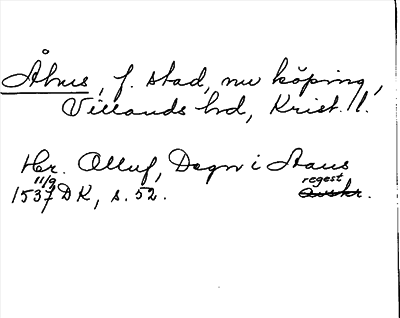 Åhus, f. stad, nu köping,
Villands hd, Krist. l.
Hr. Olluf, Degn i Aaus
11/9 regest
1537 DK, s. 52. avskr.